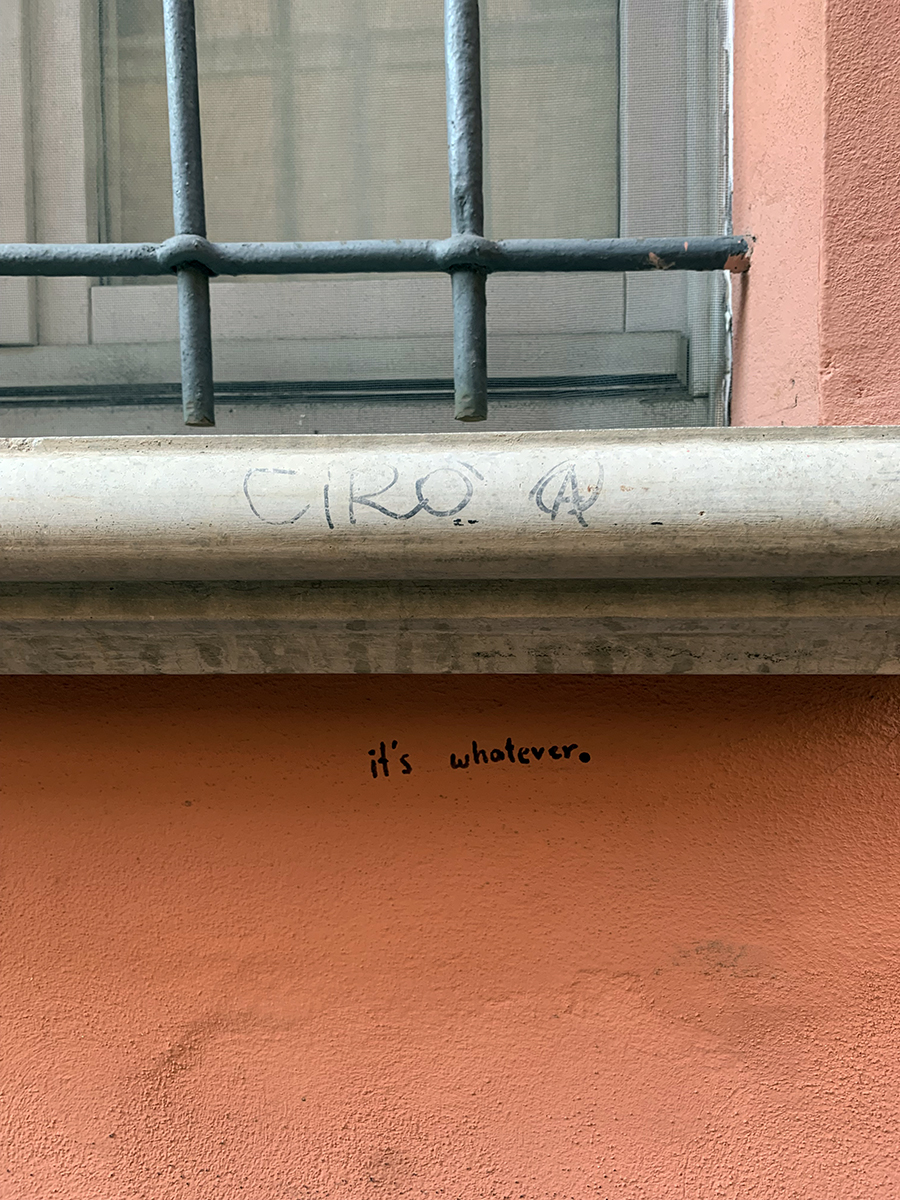 CIRO Ⓐ
it's whatever.